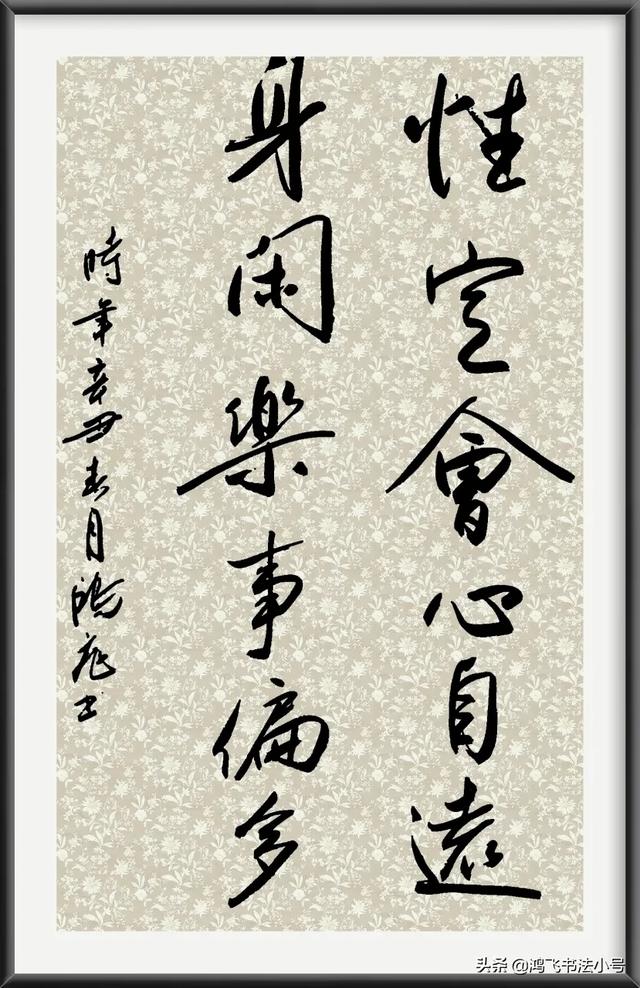 性定會心自遠
身閑樂事偏多
時年辛丑春月鴻飛書
头条 @鸿飞书法小号